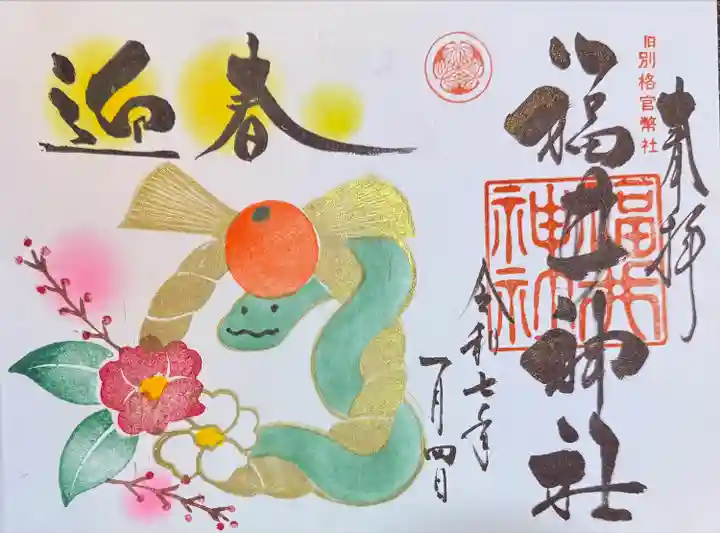 奉拝
旧別格官幣社
福井神社
福井
神社
令和七年
一月四日
迎春